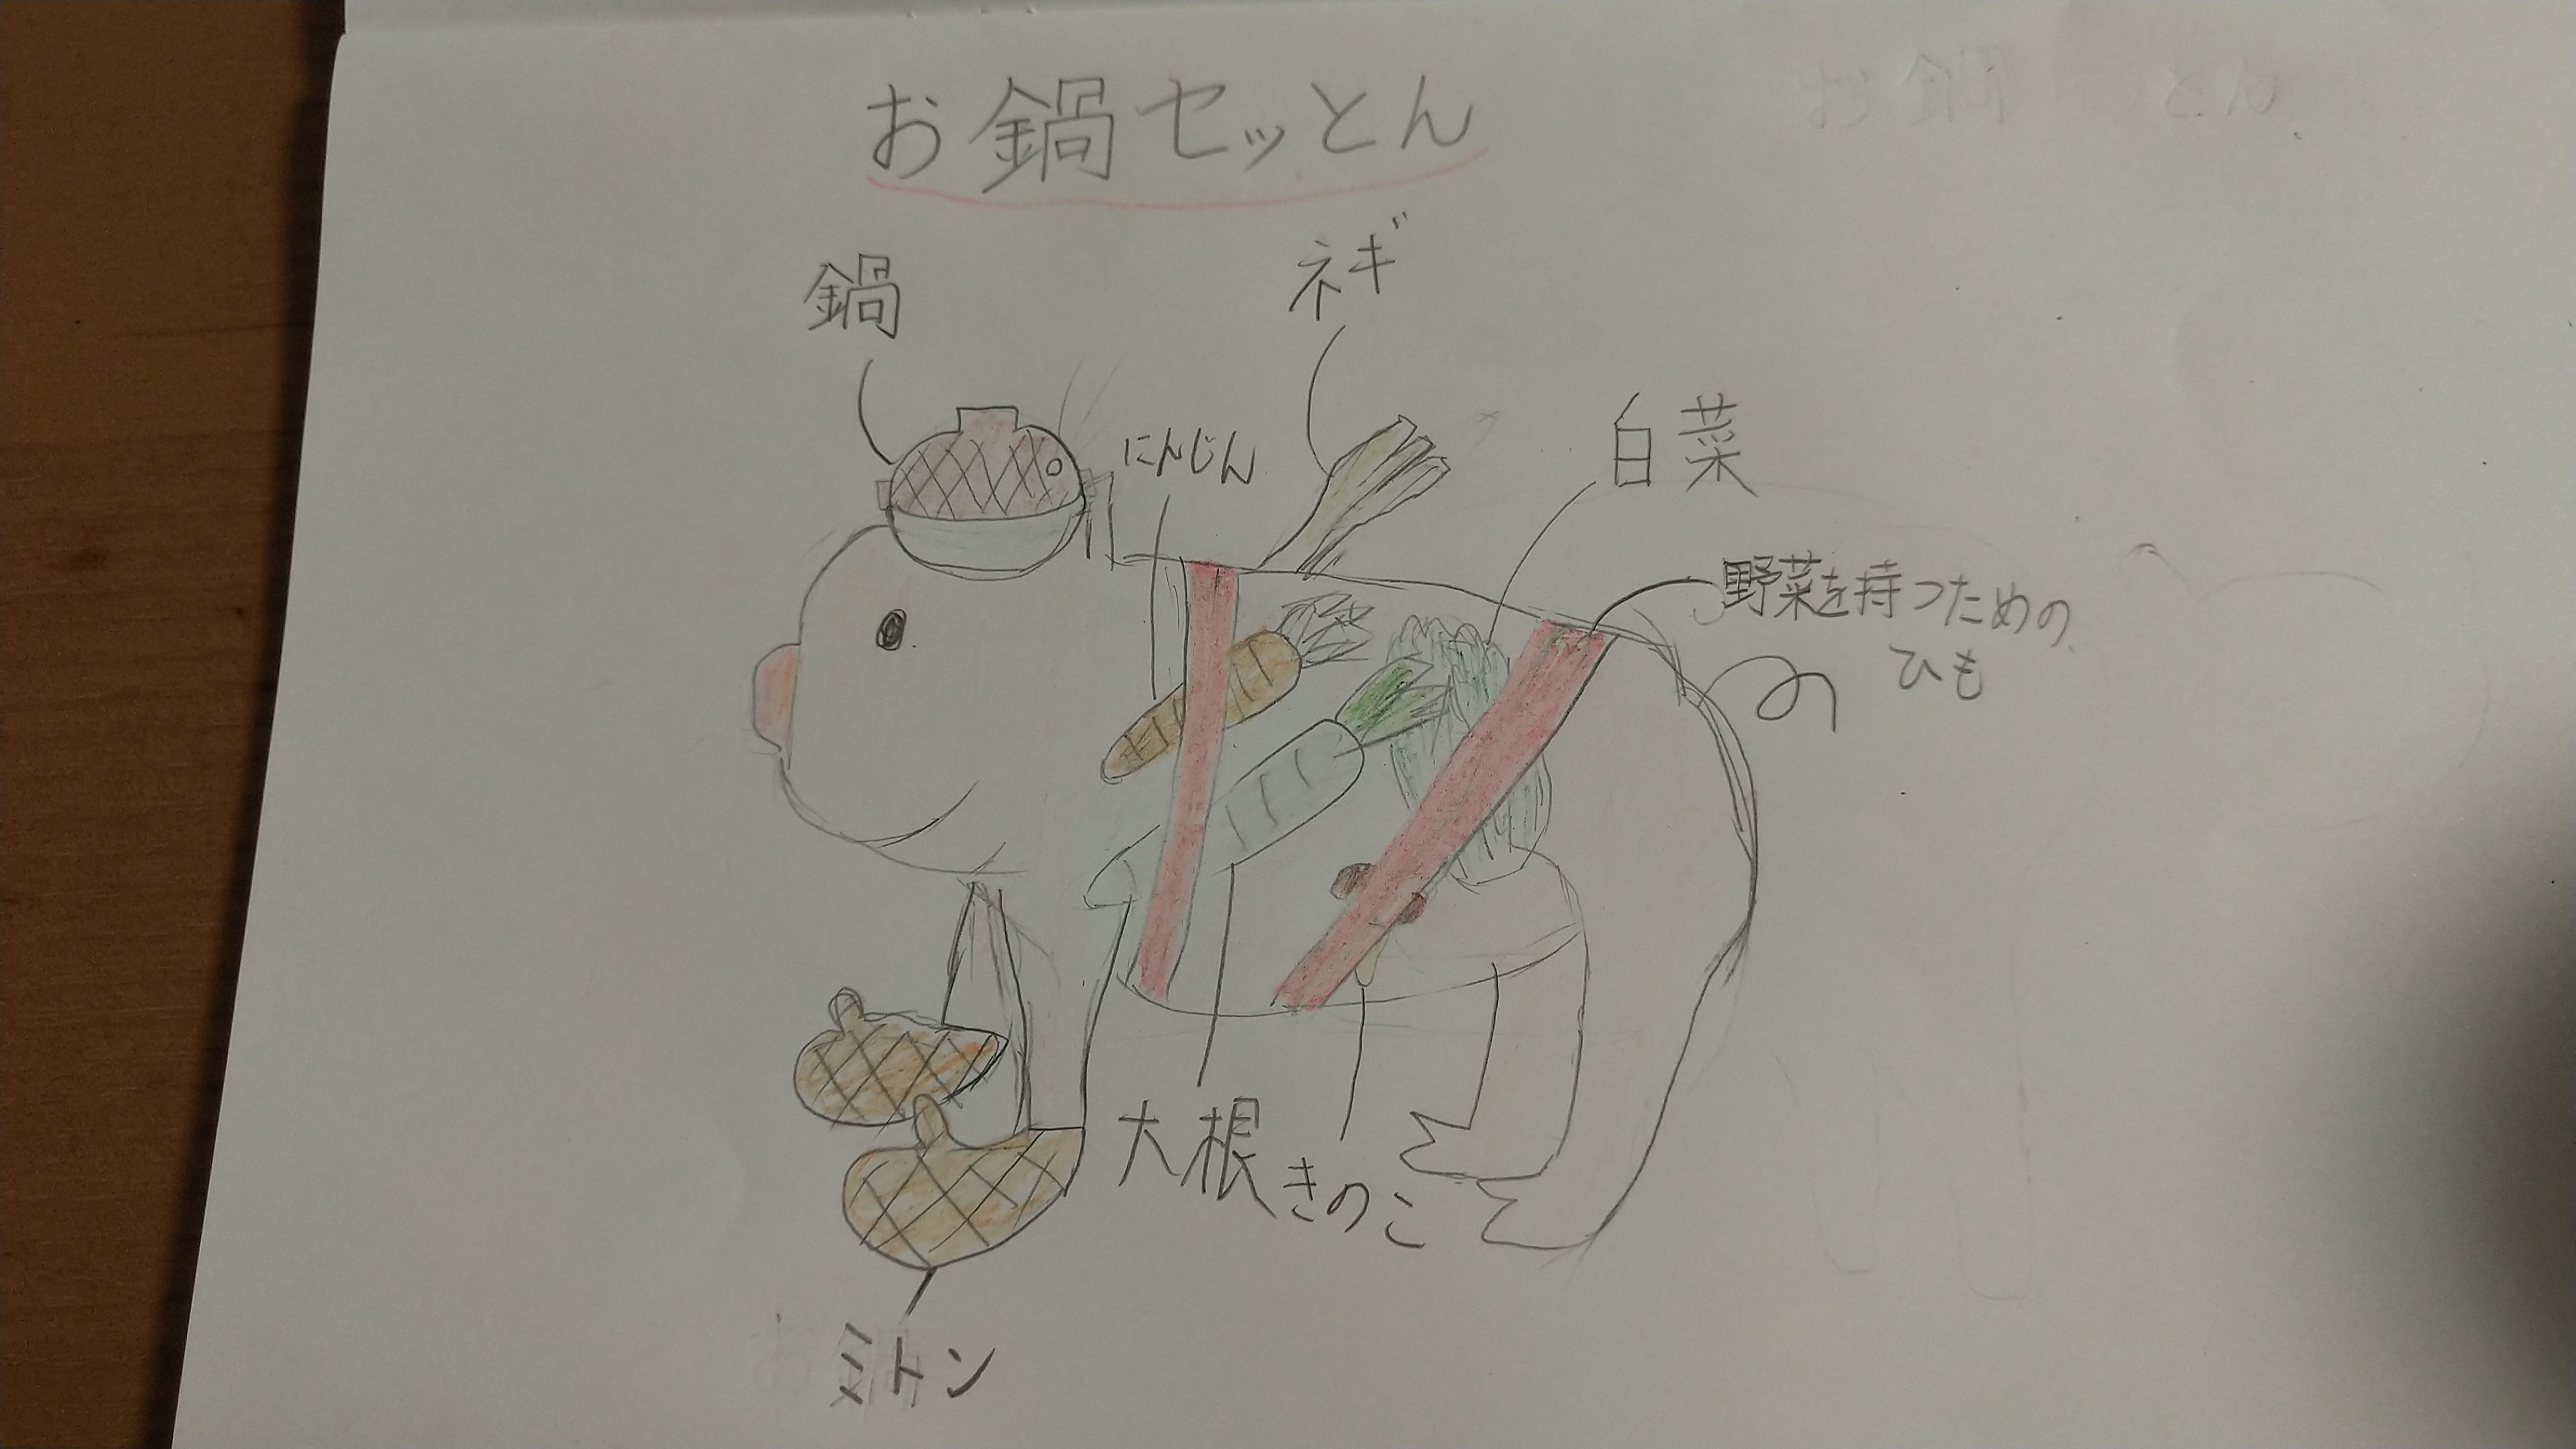 お鍋セッとん
鍋
ネギ
にんじん
白菜
野菜を持つための
ひも
大根
きのこ
ミトン